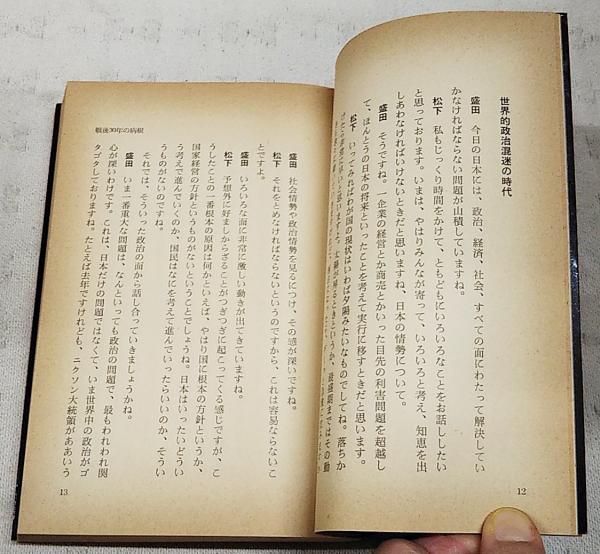 世界的政治混迷の時代
盛田　今日の日本には、政治、経済、社会、すべての面にわたって解決してい
かなければならない問題が山積していますね。
松下　私もじっくり時間をかけて、ともどもにいろいろなことをお話ししたい
と思っております。いまは、やはりみんなが寄って、いろいろと考え、知恵を出
しあわなければいけないときだと思いますね、日本の情勢について。
盛田　そうですね。一企業の経営とか商売とかいった目先の利害問題を超越し
て、ほんとうの日本の将来といったことを考えて実行に移すときだと思います。
松下　いってみればわが国の現状はいわば夕陽みたいなものでしてね。落ちか
12
戦後30年の病根
盛田　社会情勢や政治情勢を見るにつけ、その感が深いですね。
松下　それをとめなければならないというのですから、これは容易ならないこ
とですよ。
盛田　いろいろな面に非常に激しい動きが出てきていますね。
松下　予想外に好ましからざることがつぎつぎに起こってくる感じですが、こ
うしたことの一番根本の原因は何かといえば、やはり国に根本の方針というか、
国家経営の方針というものがないということでしょうね。日本はいったいどうい
う考えで進んでいくのか、国民はなにを考えて進んでいったらいいのか、そうい
うものがないのですな。
それでは、そういった政治の面から話し合っていきましょうかね。
盛田　いま一番重大な問題は、なんといっても政治の問題で、最もわれわれ関
心が深いわけです。これは、日本だけの問題ではなくて、いま世界中の政治がゴ
タゴタしておりますね。たとえば去年ですけれども、ニクソン大統領がああいう
13